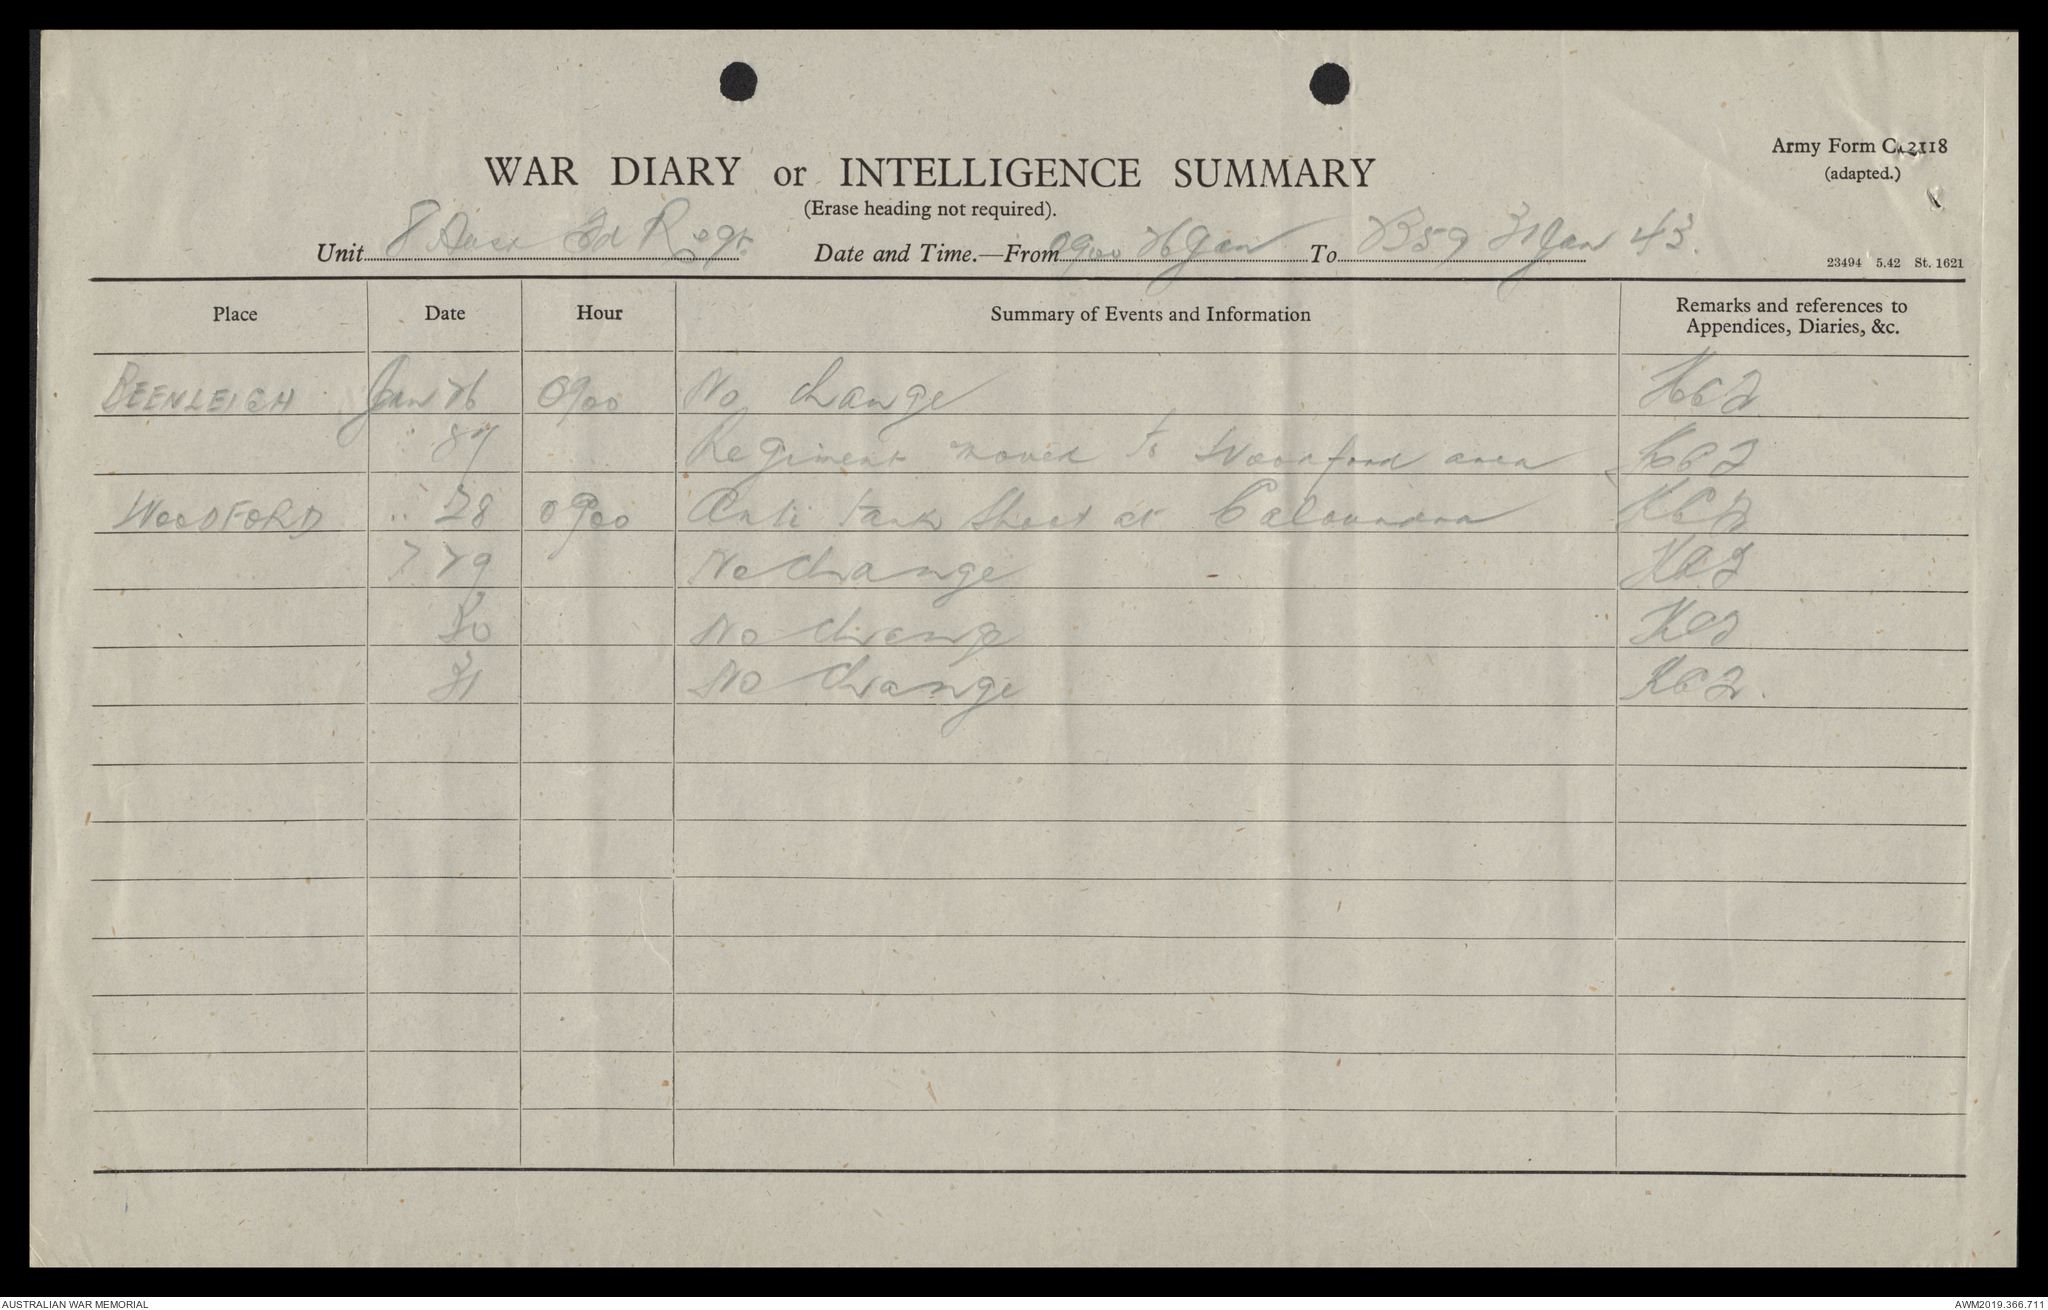 Army Form C.2118
WAR DIARY or INTELLIGENCE SUMMARY
(adapted.)
(Erase heading not required).
Unit 8 Aust Fd Regt Date and Time.—From 0900 26 Jan To 2359 31 Jan 43.
23494 5.42 St. 1621
Place Date Hour Summary of Events and Information Remarks and references to Appendices, Diaries, &c.
BEENLEIGH Jan 26 0900 No change
" 27 Regiment moved to Woodford area
WOODFORD " 28 0900 Anti tank Shoot at Caloundra
" 29 No change
30 No change
31 No change
AUSTRALIAN WAR MEMORIAL
AWM2019.366.711